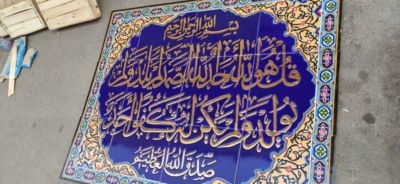 بسم الله الرحمن الرحيم
قل هو الله أحد الله الصمد لم يلد ولم
يولد ولم يكن له كفوا أحد
صدق الله العظيم